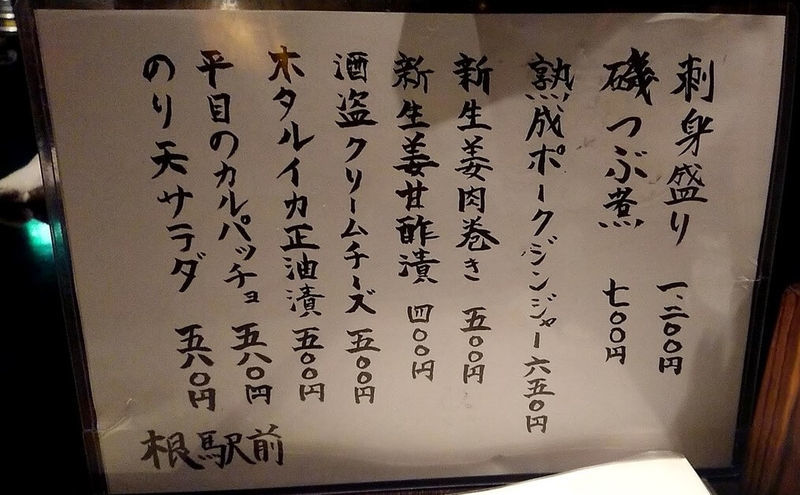 刺身盛り 一、二〇〇円
磯つぶ煮 七〇〇円
熟成ポークジンジャー 六五〇円
新生姜肉巻き 五〇〇円
新生姜甘酢漬 四〇〇円
酒盗クリームチーズ 五〇〇円
ホタルイカ正油漬 五〇〇円
平目のカルパッチョ 五八〇円
のり天サラダ 五八〇円
根駅前